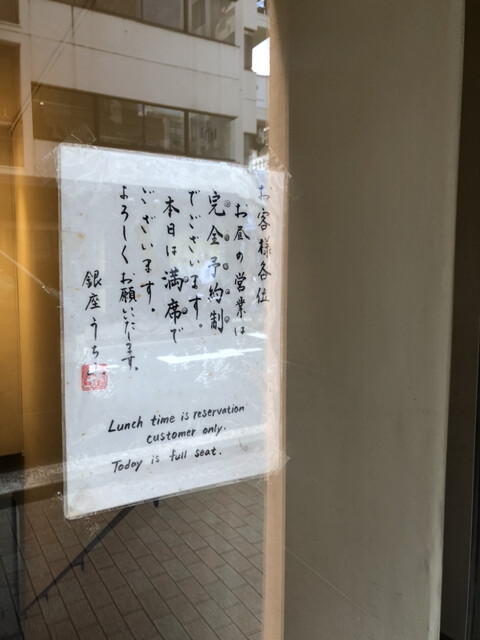 お客様各位
お昼の営業は
完全予約制
でございます。
本日は満席で
ございます。
よろしくお願いいたします。
銀座うち
Lunch time is reservation
customer only.
Today is full seat.